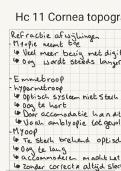 Hc 11 Cornea topogra
Refractie afwijkingen
- Myopie neemt toe
↳ Veel meer bezig met digit
↳ Oog wordt steeds langer
- Emmetroop
- Hypermetroop
↳ Optisch systeem niet sterk
↳ Oog te kort
↳ Door accomodatie handt
↳ Vaak amblyopie
- Myoop
↳ Te sterk brekend optisch
↳ Oog te lang
↳ accommoderen maakt het
↳ zonder correctie altijd